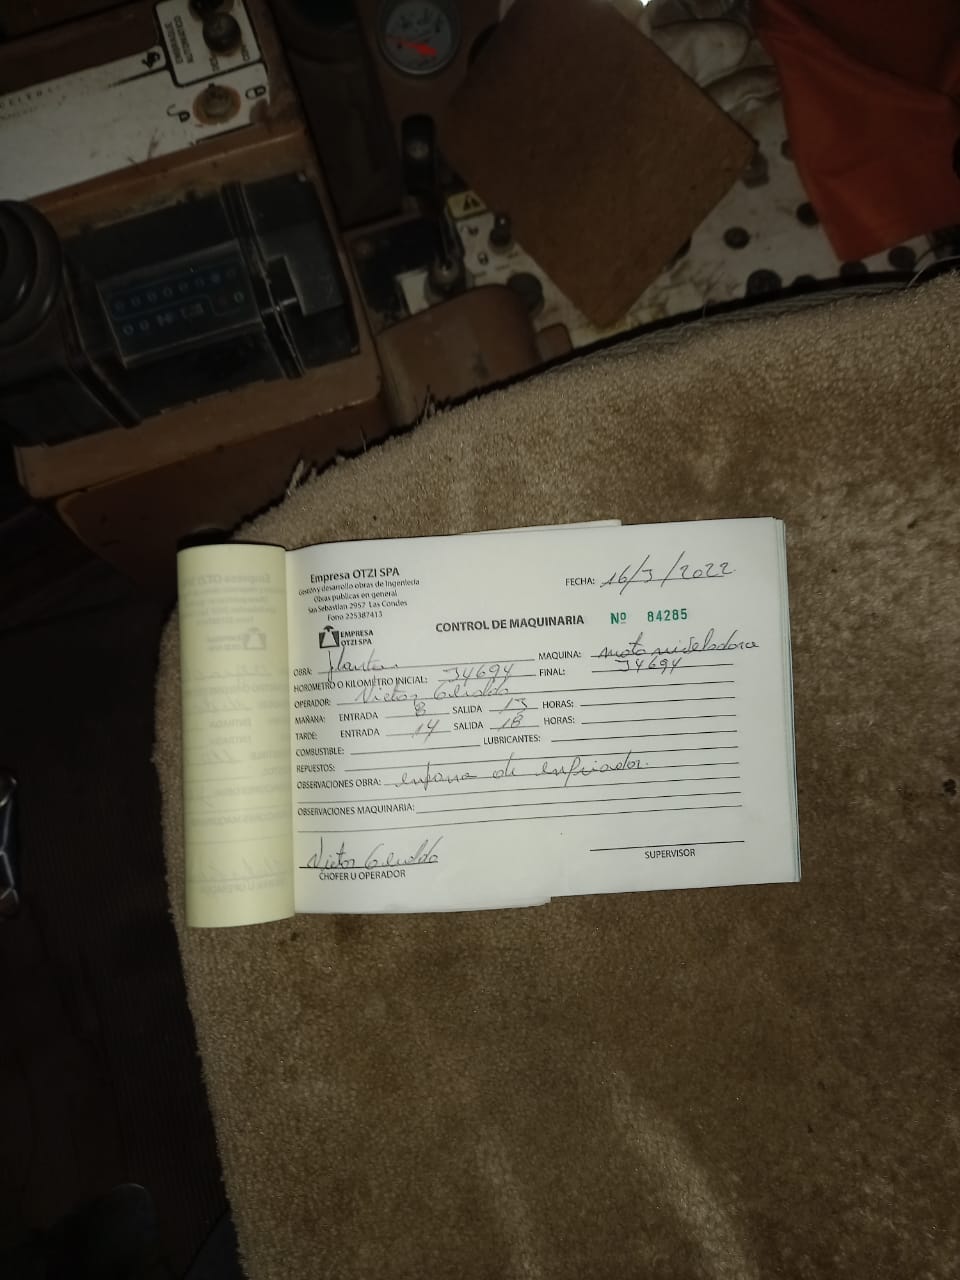 Empresa OTZI SPA
Gestión y desarrollo obras de Ingeniería
Obras publicas en general
San Sebastian 2957 Las Condes
Fono 225387413
EMPRESA
OTZI SPA
FECHA: 16/3/2022
CONTROL DE MAQUINARIA Nº 84285
OBRA: Planta MAQUINA: moto niveladora
HOROMETRO O KILOMÉTRO INICIAL: 34694 FINAL: 34694
OPERADOR: Victor Geraldo
MAÑANA: ENTRADA 8 SALIDA 13 HORAS:
TARDE: ENTRADA 14 SALIDA 18 HORAS:
COMBUSTIBLE: LUBRICANTES:
REPUESTOS:
OBSERVACIONES OBRA: de enfriador.
OBSERVACIONES MAQUINARIA:
Victor Geraldo
CHOFER U OPERADOR
SUPERVISOR